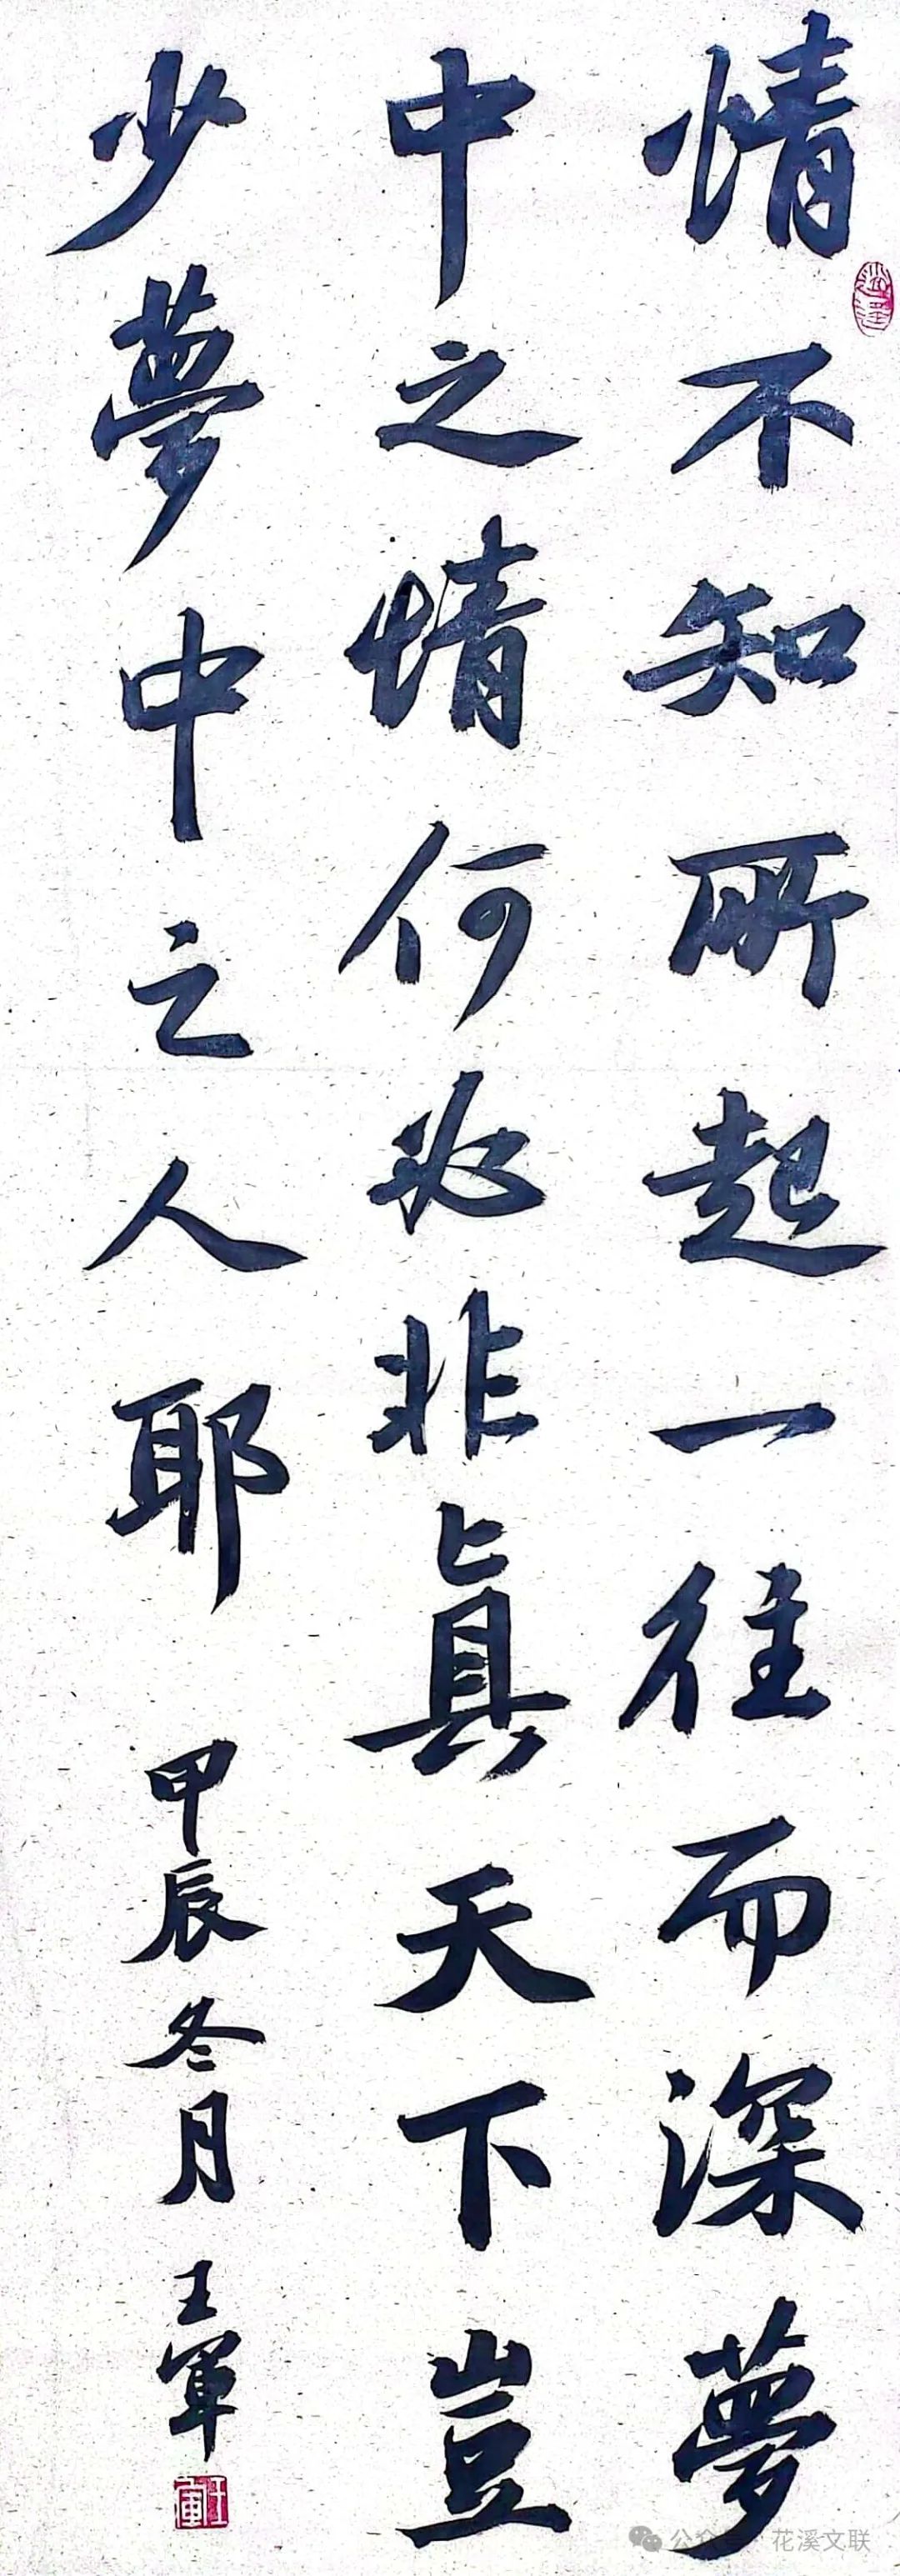 情不知所起一往而深夢
中之情何必非真天下豈
少夢中之人耶
甲辰冬月王軍
王軍
公众号 花溪文联